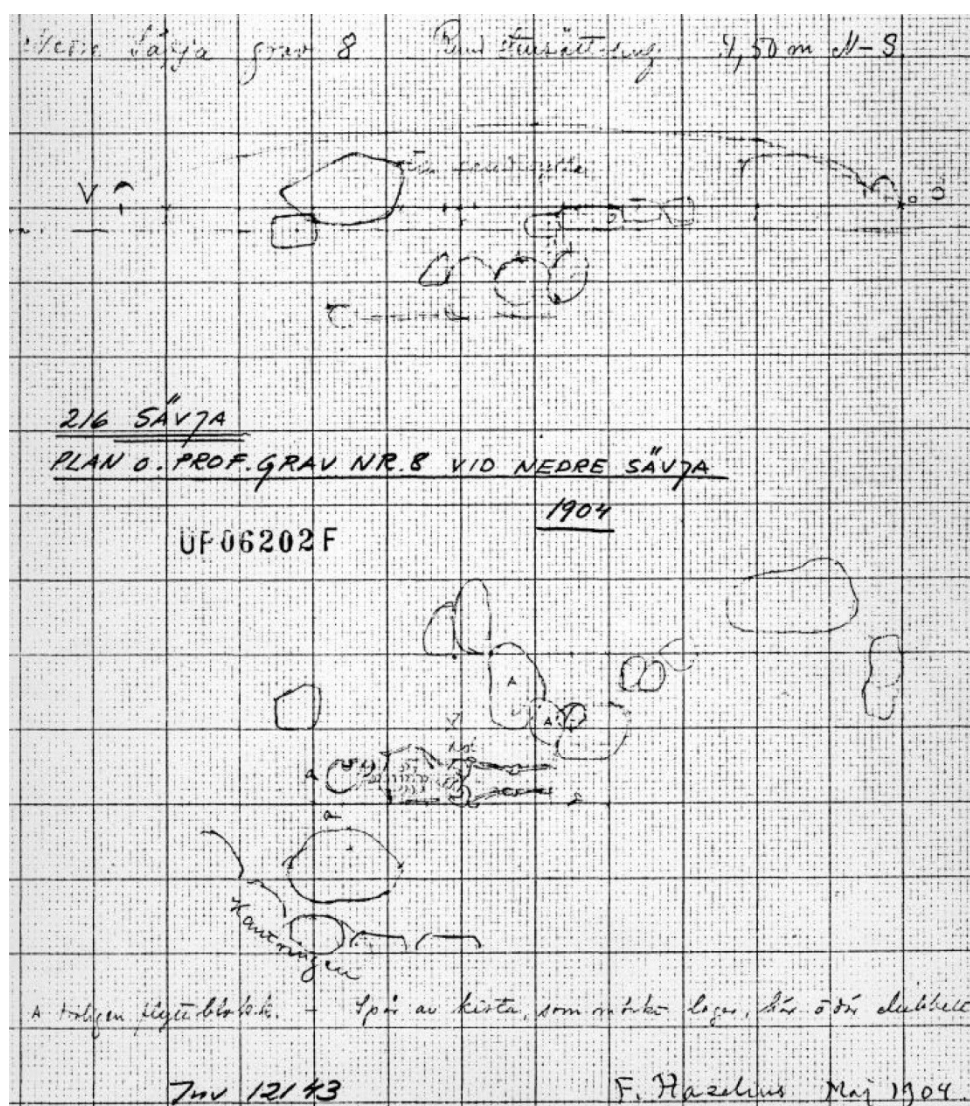 Nedre Sävja grav 8 Rund stensättning 4,50 m N-S
V Ö
216 SÄVJA
PLAN O. PROF. GRAV NR. 8 VID NEDRE SÄVJA
1904
UP06202F
A
A
a
a
Kantningen
A troligen flyttblock. - Spår av kista, som mörka lager, här o där
Inv 12143
F. Hazelius Maj 1904.